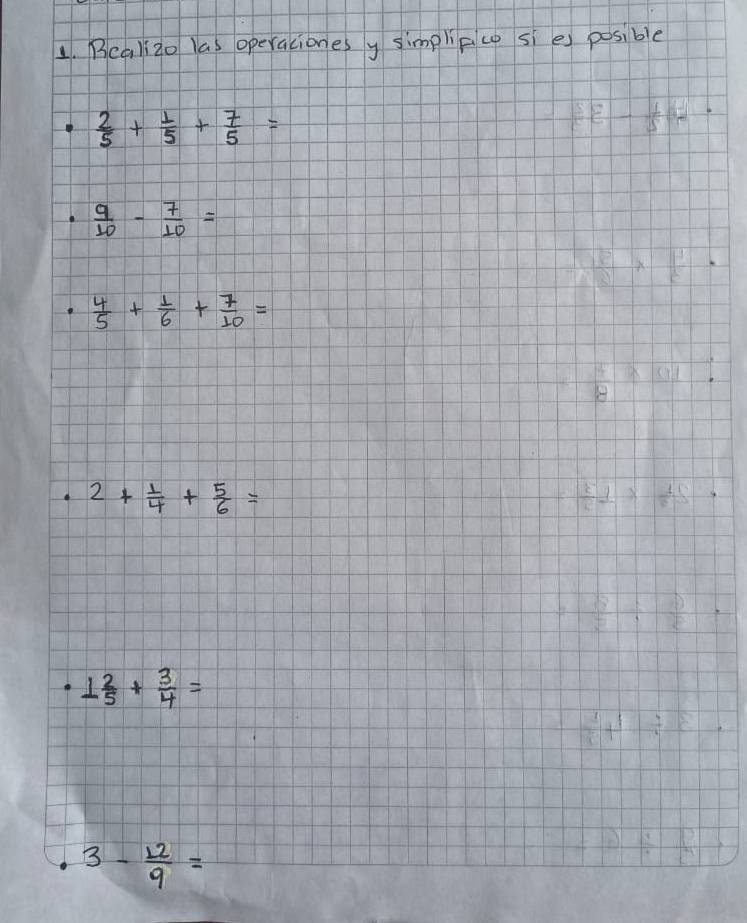 1. Realizo las operaciones y simplifico si es posible
• 2/5 + 1/5 + 7/5 =
• 9/10 - 7/10 =
• 4/5 + 1/6 + 7/10 =
• 2 + 1/4 + 5/6 =
• 1 2/5 + 3/4 =
• 3 - 12/9 =